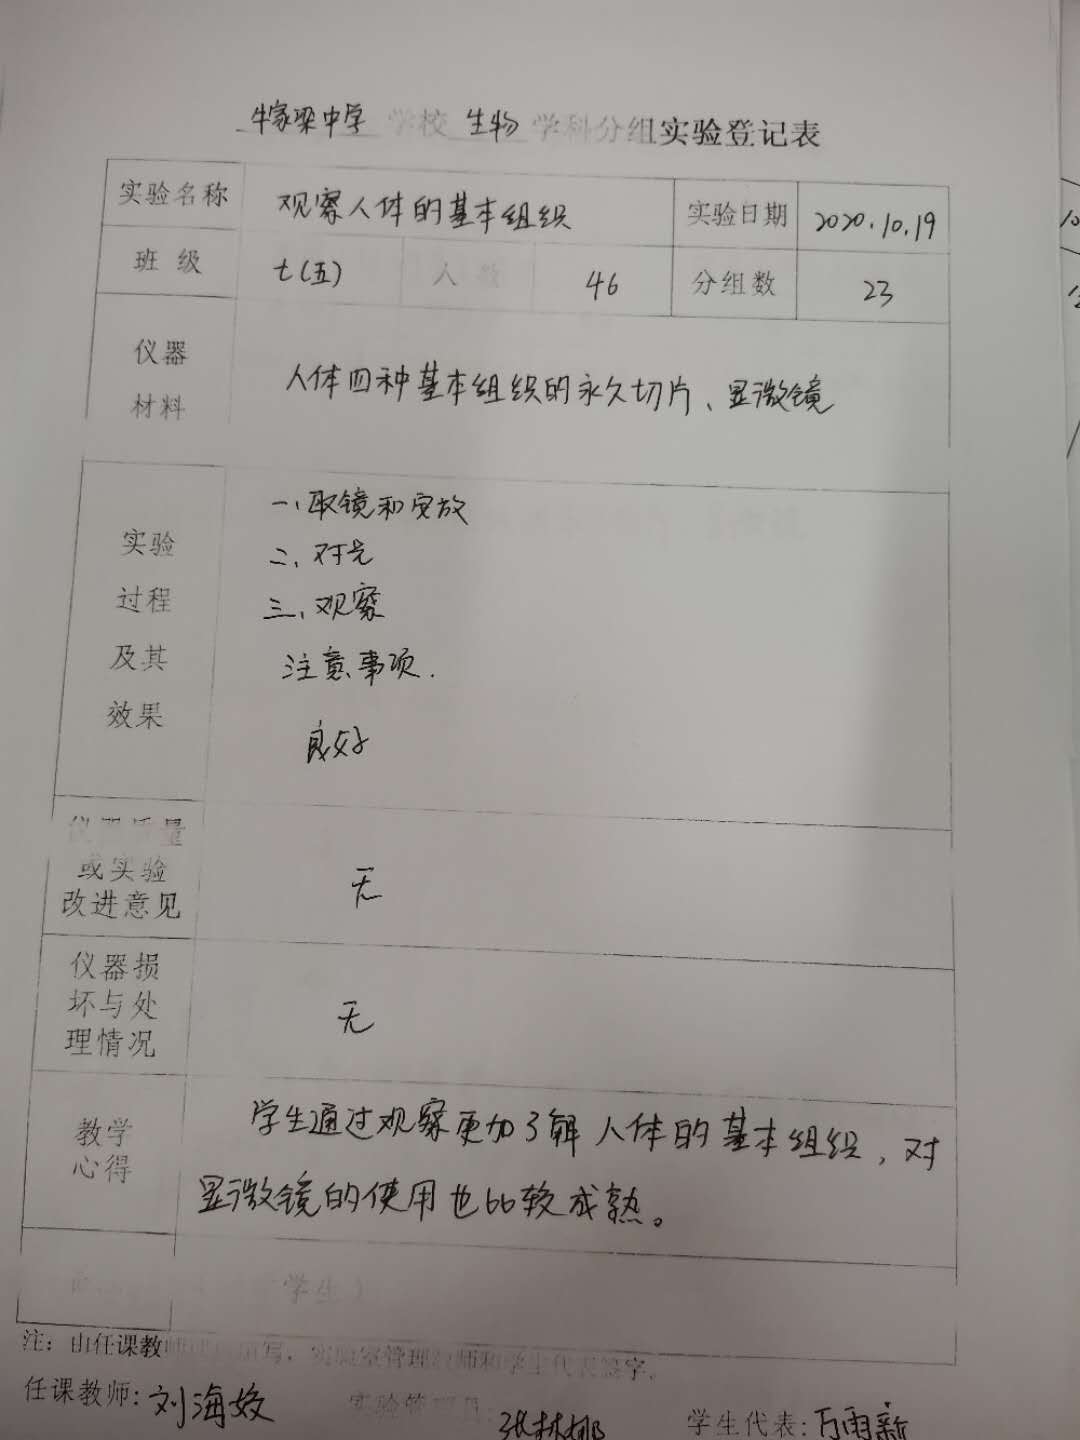 牛家梁中学 学校 生物 学科分组实验登记表
实验名称 观察人体的基本组织 实验日期 2020.10.19
班级 七(五) 人数 46 分组数 23
仪器
材料
人体四种基本组织的永久切片、显微镜
实验
过程
及其
效果
一、取镜和安放
二、对光
三、观察
注意事项.
良好
仪器质量
或实验
改进意见
无
仪器损
坏与处
理情况
无
教学
心得
学生通过观察更加了解人体的基本组织，对
显微镜的使用也比较成熟。
学生
注：由任课教师填写，实验室管理教师和学生代表签字。
任课教师: 刘海姣 实验管 学生代表: 万雨新